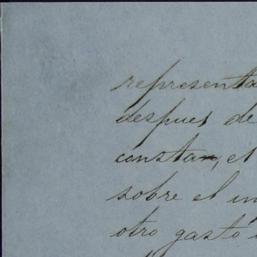 representa
despues de
constar, el
sobre el in
otro gasto